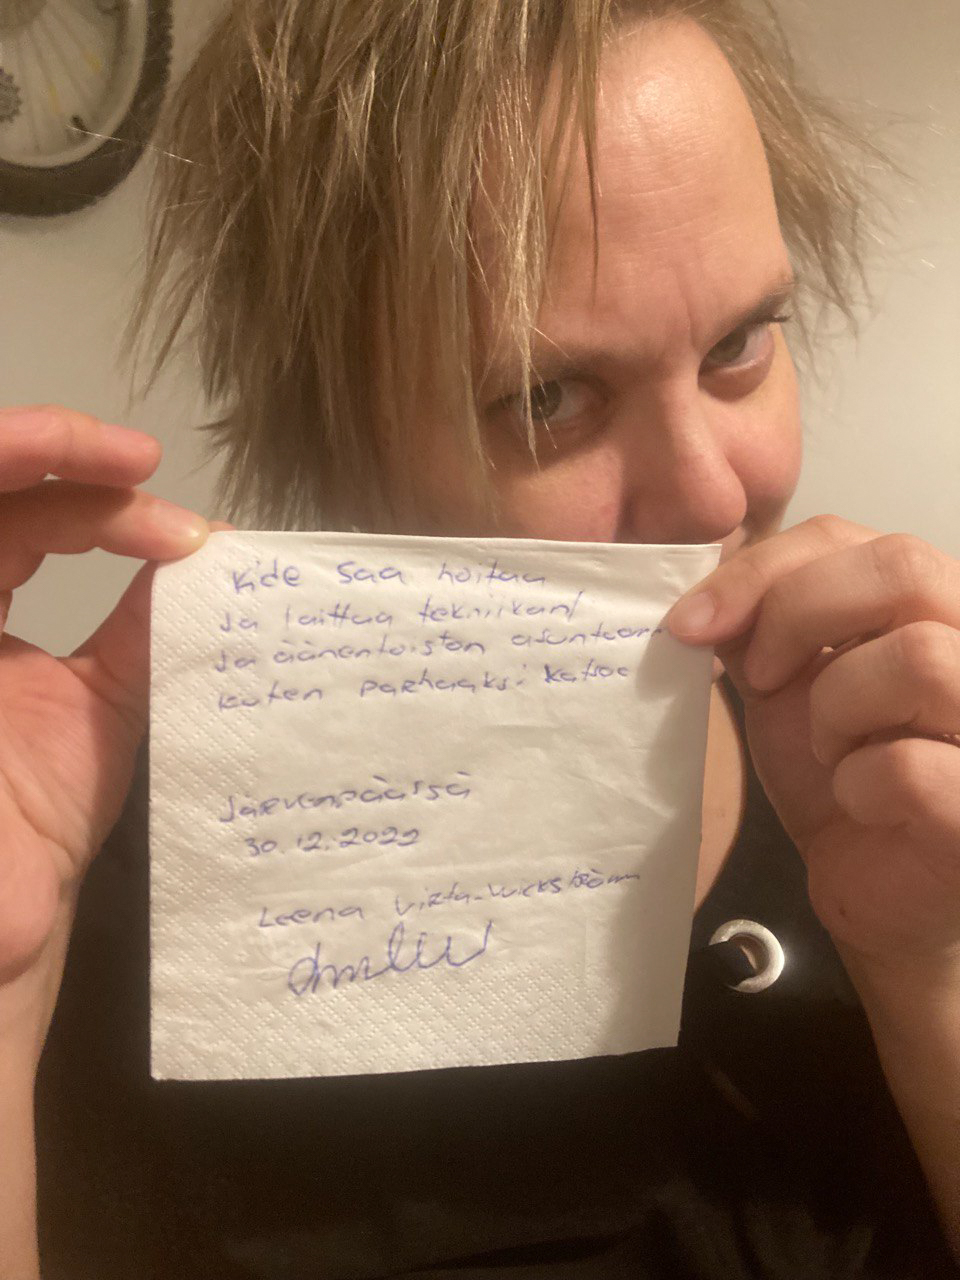 Kide saa hoitaa
ja laittaa tekniikan/
ja äänentoiston asuntoon
kuten parhaaksi katsoo
Järvenpäässä
30.12.2022
Leena Virta-Wickström